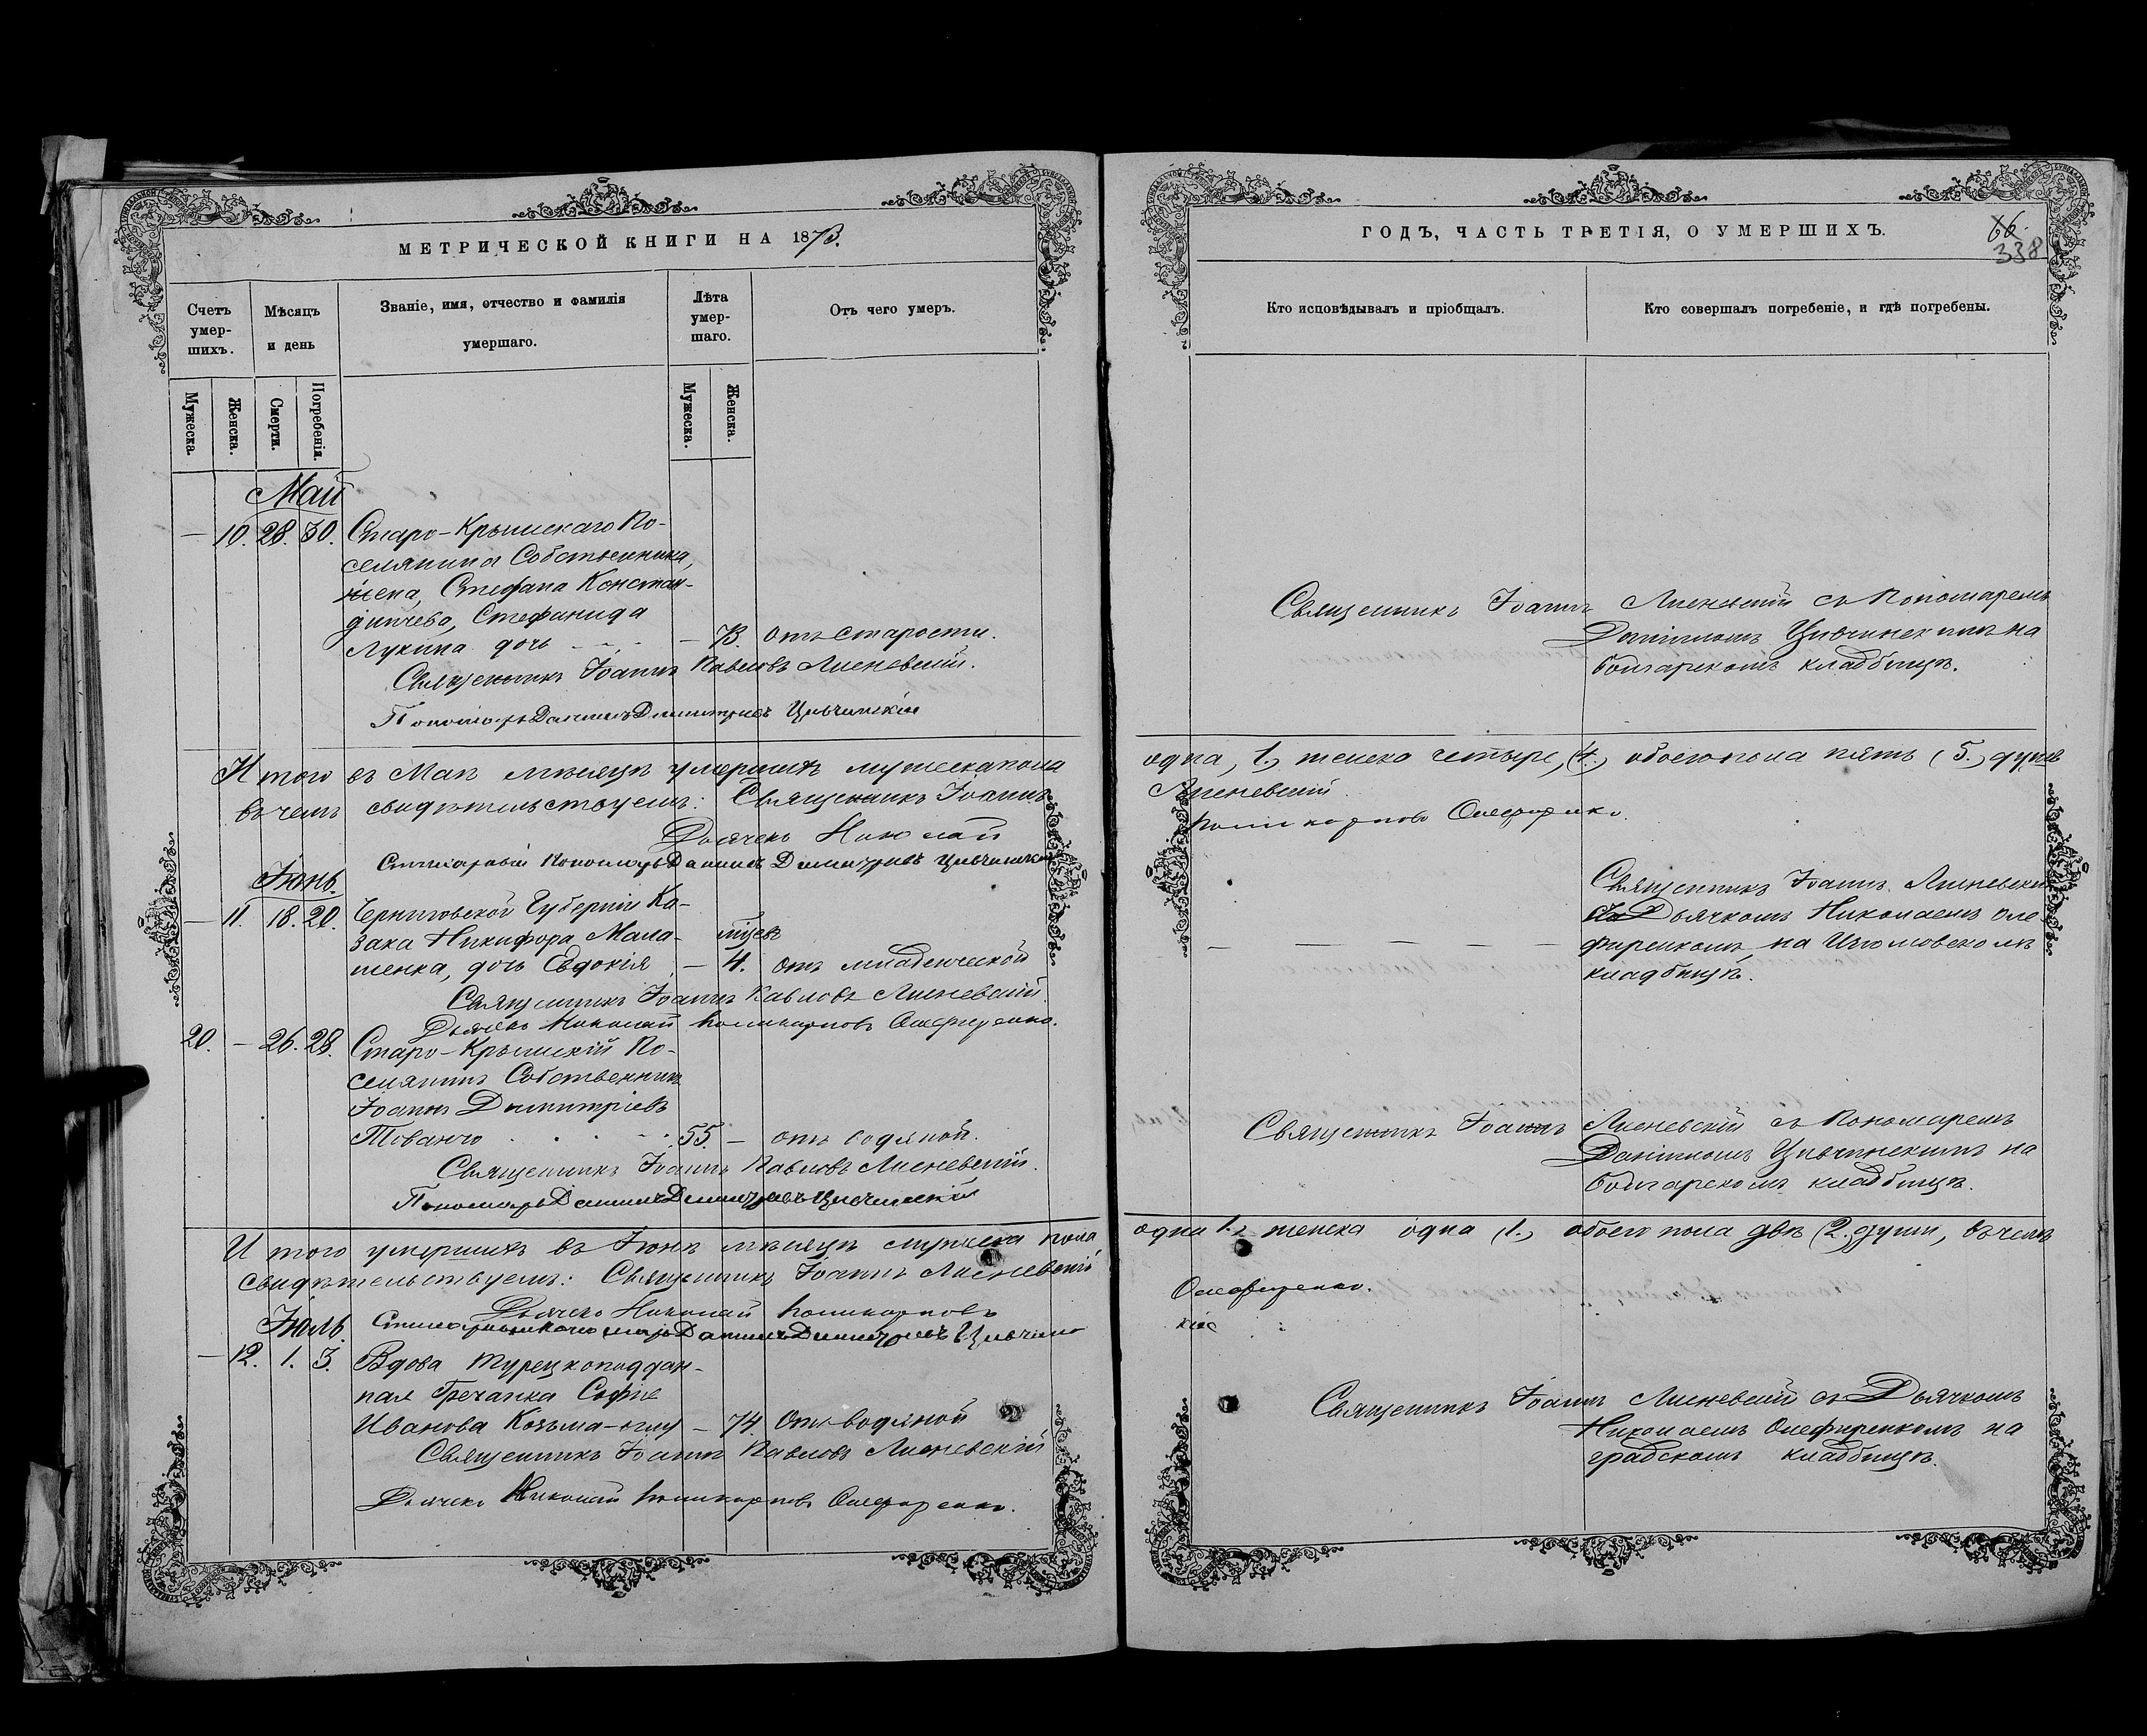 МЕТРИЧЕСКОЙ КНИГИ НА 1873.
Счетъ умер-шихъ.
Мѣсяцъ и день
Званіе, имя, отчество и фамилія умершаго.
Лѣта умер-шаго.
Отъ чего умеръ.
Мужеска.
Женска.
Смерти.
Погребенія.
Мужеска.
Женска.
Май
— 10. 28. 30. Старо-Крымскаго По-
селянина Собственника,
Стефана Констан-
динчева, Стефанида
Лукина дочь — 73. отъ старости.
Священникъ Іоаннъ Павловъ Лисневскій.
Пономарь Даніилъ Димитріевъ Цивчинскій
И того въ Маѣ мѣсяцѣ умершихъ мужеска пола
въ чемъ свидѣтельствуемъ: Священникъ Іоаннъ
Дьячекъ Николай
Пономарь Даніилъ Димитріевъ Цивчинскій
Іюнь.
— 11. 18. 20. Черниговской Губерніи Ка-
зака Никифора Мала-
мѣсяц
шенка, дочь Евдокія — 4. отъ младенческой
Священникъ Іоаннъ Павловъ Лисневскій.
Дьячекъ Николай Поликарповъ Олефиренко.
20. — 26. 28. Старо-Крымскій По-
селянинъ Собственникъ
Іоаннъ Димитріевъ
Тованчо 55. — отъ водяной.
Священникъ Іоаннъ Павловъ Лисневскій.
Пономарь Даніилъ Димитріевъ Цивчинскій
И того умершихъ въ Іюнѣ мѣсяцѣ мужеска пола
свидѣтельствуемъ: Священникъ Іоаннъ Лисневскій
Дьячекъ Николай Поликарповъ
Іюль.
Пономарь Даніилъ Димитріевъ Цивчинс
— 12. 1. 3. Вдова турецкоподдан-
ная Гречанка Софіе
Иванова Козьма-оглу — 74. Отъ водяной
Священникъ Іоаннъ Павловъ Лисневскій
Дьячекъ Николай Поликарповъ Олефиренко.
ГОДЪ, ЧАСТЬ ТРЕТІЯ, О УМЕРШИХЪ.
66.
338
Кто исповѣдывалъ и пріобщалъ.
Кто совершалъ погребеніе, и гдѣ погребены.
Священникъ Іоаннъ Лисневскій съ Пономаремъ
Даніиломъ Цивчинскимъ на
болгарскомъ кладбищѣ.
одна, 1., женска четыре, (4.), обоего пола пять (5.) душъ
Лисневскій.
Поликарповъ Олефиренко.
Священникъ Іоаннъ Лисневскій
Дьячкомъ Николаемъ Оле-
— — — — — фиренкомъ на Изюмовскомъ
кладбищѣ.
Священникъ Іоаннъ Лисневскій съ Пономаремъ
Даніиломъ Цивчинскимъ на
болгарскомъ кладбищѣ.
одна 1., женска одна (1.), обоего пола двѣ (2.) души, въ чемъ
Олефиренко.
кій
Священникъ Іоаннъ Лисневскій съ Дьячкомъ
Николаемъ Олефиренкомъ на
градскомъ кладбищѣ.